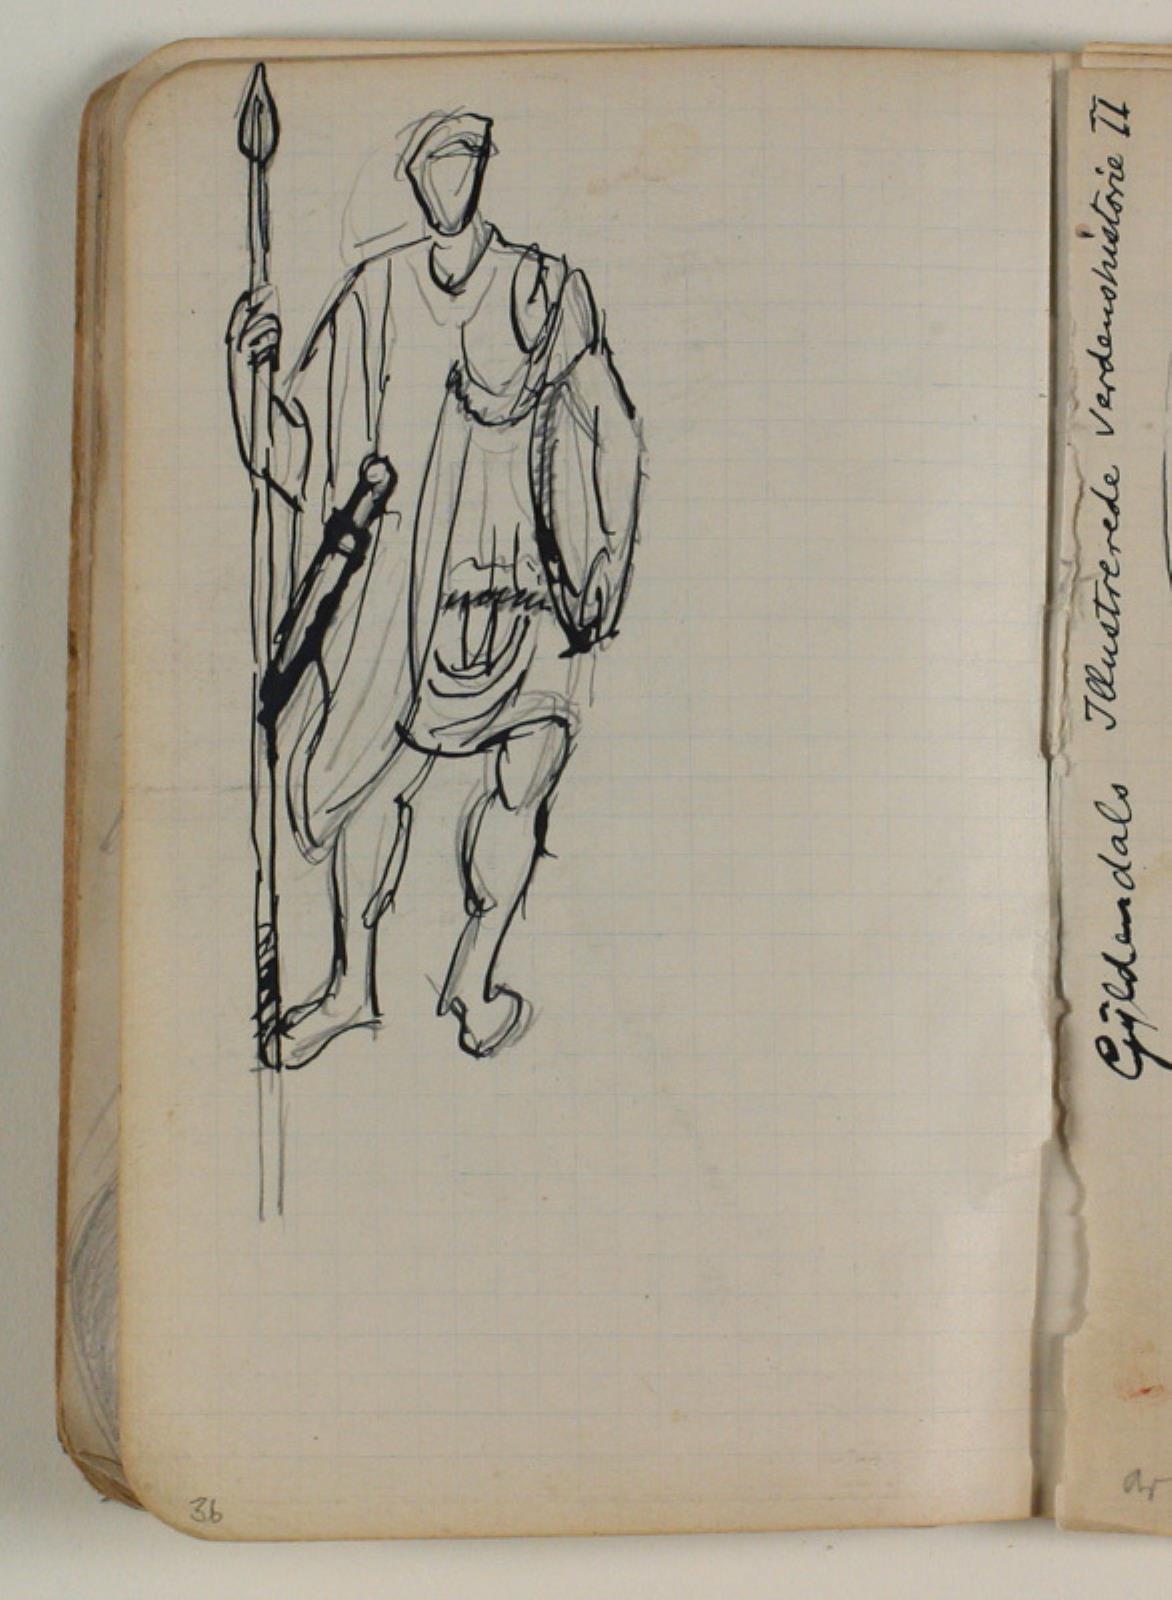 Gÿldendals Illustrerede Verdenshistorie II
36